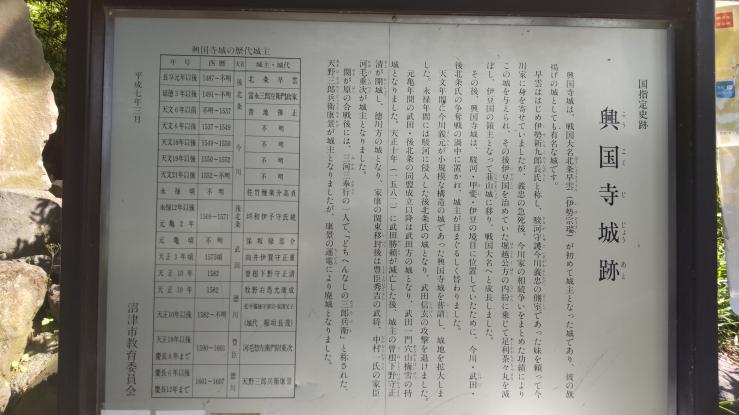 国指定史跡
興国寺城跡
こうこくじじょうあと
興国寺城は、戦国大名北条早雲（伊勢宗瑞）が初めて城主となった城であり、彼の旗
揚げの城としても有名な城です。
早雲ははじめ伊勢新九郎長氏と称し、駿河守護今川義忠の側室であった妹を頼って今
川家に身を寄せていましたが、義忠の急死後、今川家の相続争いをまとめた功績により
この城を与えられ、その後伊豆国を治めていた堀越公方の内紛に乗じて足利茶々丸を滅
ぼし、伊豆国の領主となって韮山城に移り、戦国大名へと成長しました。
その後、興国寺城は、駿河・甲斐・伊豆の境目に位置していたために、今川・武田・
後北条氏の争奪戦の渦中に置かれ、城主が目まぐるしく替わりました。
天文年間に今川義元が小規模な構造の城であった興国寺城を普請し、城地を拡大しま
した。永禄年間には駿河に侵入した後北条氏の城となり、武田信玄の攻撃を退けました。
元亀年間の武田・後北条の同盟成立以降は武田方の城となり、武田一門穴山梅雪の持
城となりました。天正十年（一五八二）に武田勝頼が滅亡した後、城主の曽根下野守正
清が開城し、徳川方の城となり、家康の関東移封後は豊臣秀吉の武将、中村一氏の家臣
河毛重次が城主となりました。
関が原の合戦後には、三河三奉行の一人で、「どちへんなしの三郎兵衛」と称された、
天野三郎兵衛康景が城主となりましたが、康景の逐電により廃城となりました。
興国寺城の歴代城主
年号 西暦 大名 城主・城代
長享元年以後 1487～不明 後北条 北条早雲
延徳3年以後 1491～不明 富永三郎左衛門政家
天文6年以前 不明～1537 青地飛正
天文6年以後 1537～1549 今川 不明
天文18年以後 1549～1550 不明
天文19年以後 1550～1552 不明
天文21年以後 1552～不明 不明
永禄頃 不明
永禄12年以後 元亀2年 1569～1571 後北条 垪和伊予守氏続
元亀頃 不明 武田 保坂掃部介
天正3年頃 1575頃 向井伊賀守正重
天正10年 1582 曽根下野守正清
天正10年 1582 徳川 牧野右馬允康成
天正10年以後 1582～不明
天正18年以後 慶長6年まで 1590～1601 豊臣 河毛惣左衛門尉重次
慶長6年以後 慶長12年まで 1601～1607 徳川 天野三郎兵衛康景
平成七年三月
沼津市教育委員会